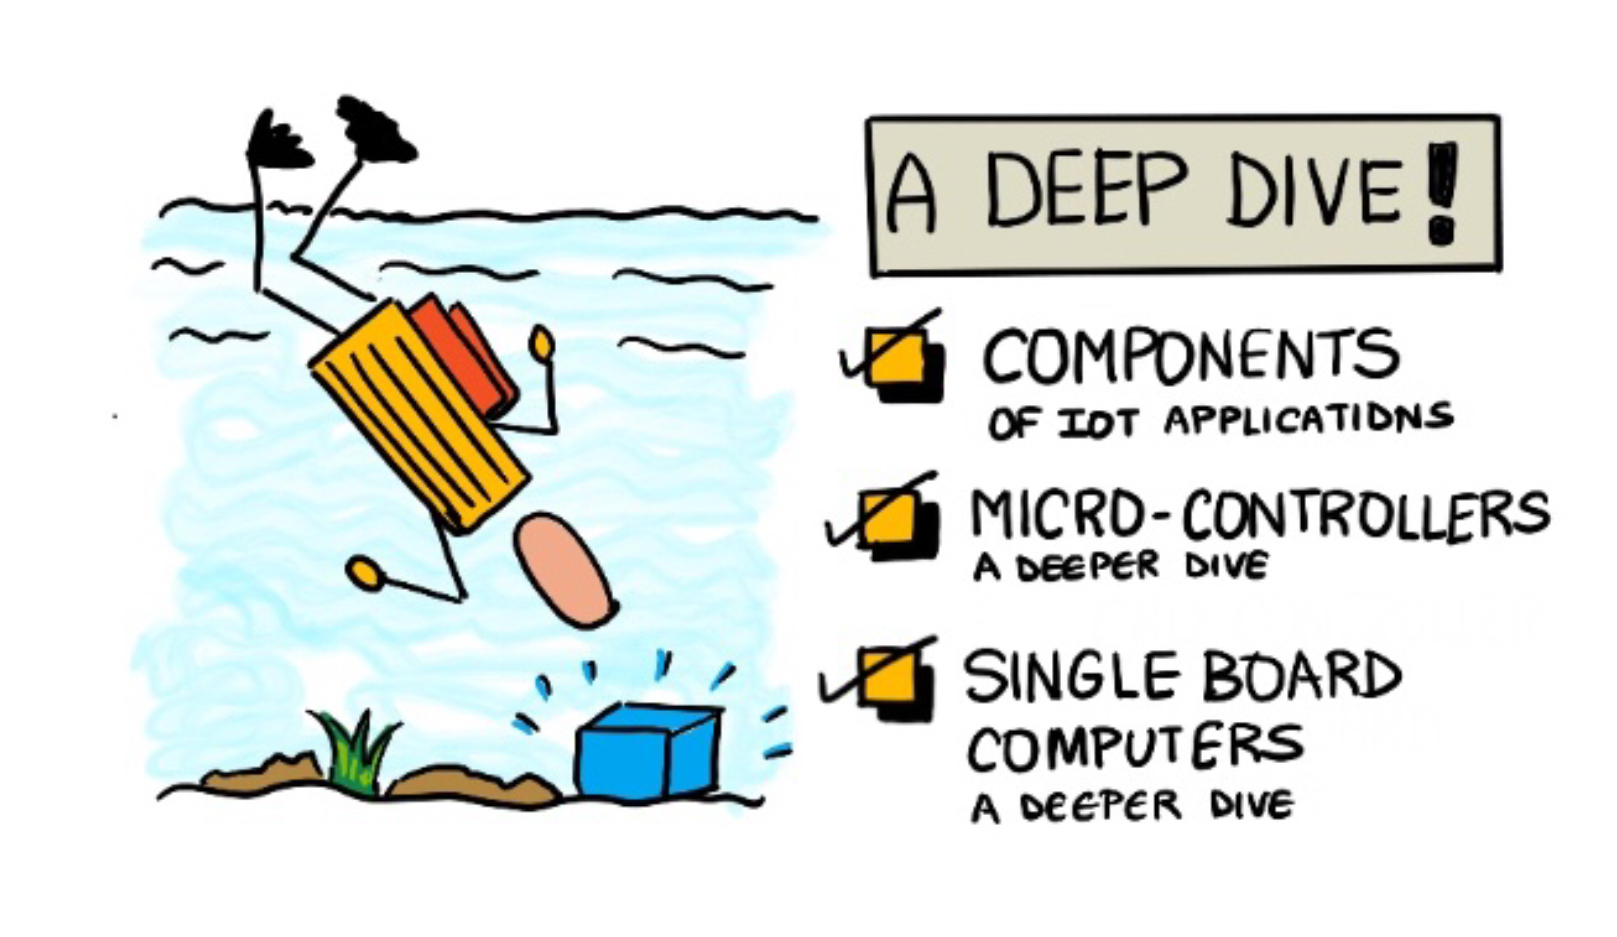 A DEEP DIVE!
COMPONENTS
OF IOT APPLICATIONS
MICRO-CONTROLLERS
A DEEPER DIVE
SINGLE BOARD
COMPUTERS
A DEEPER DIVE